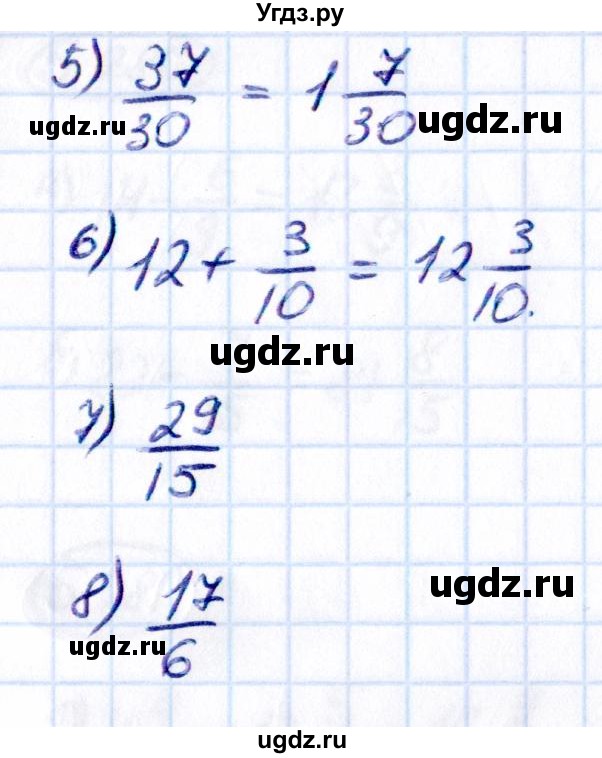 Угдз.ру
5) 37/30 = 1 7/30
ugdz.ru ugdz.ru
6) 12 + 3/10 = 12 3/10.
ugdz.ru
7) 29/15
8) 17/6
ugdz.ru
ugdz.ru
ugdz.ru